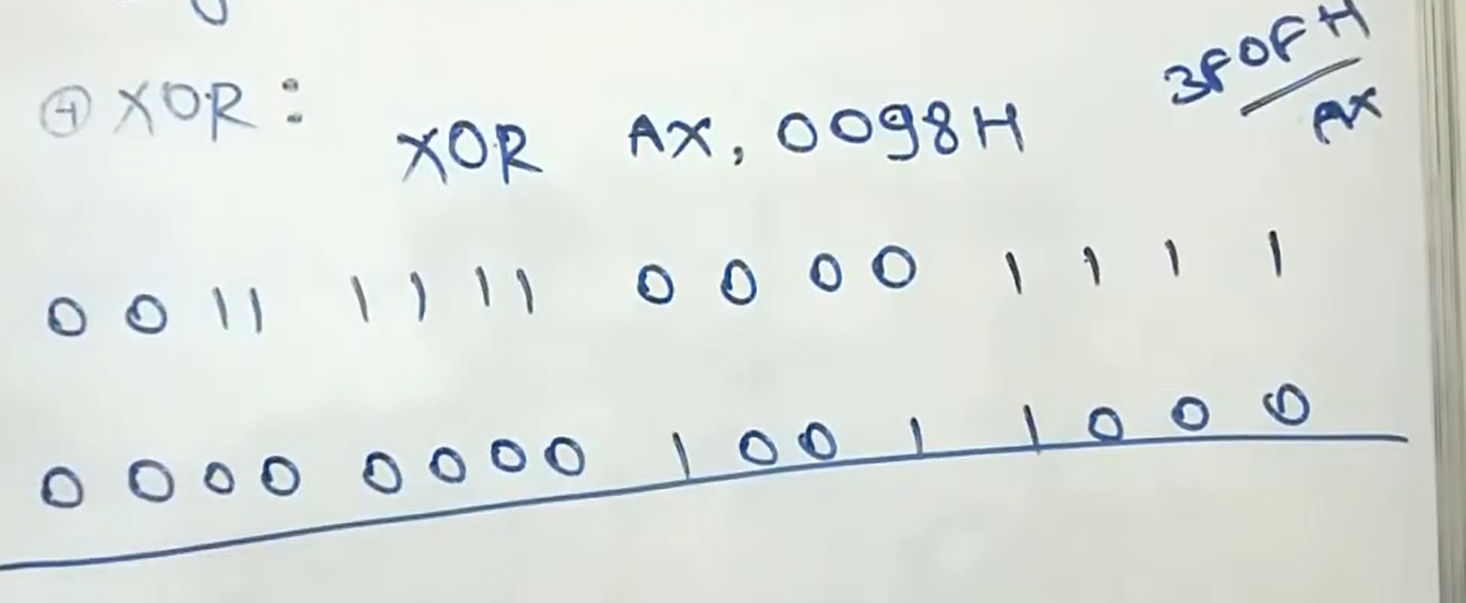 ④ XOR:
XOR AX, 0098H
3F0FH
AX
0 0 1 1 1 1 1 1 0 0 0 0 1 1 1 1
0 0 0 0 0 0 0 0 1 0 0 1 1 0 0 0